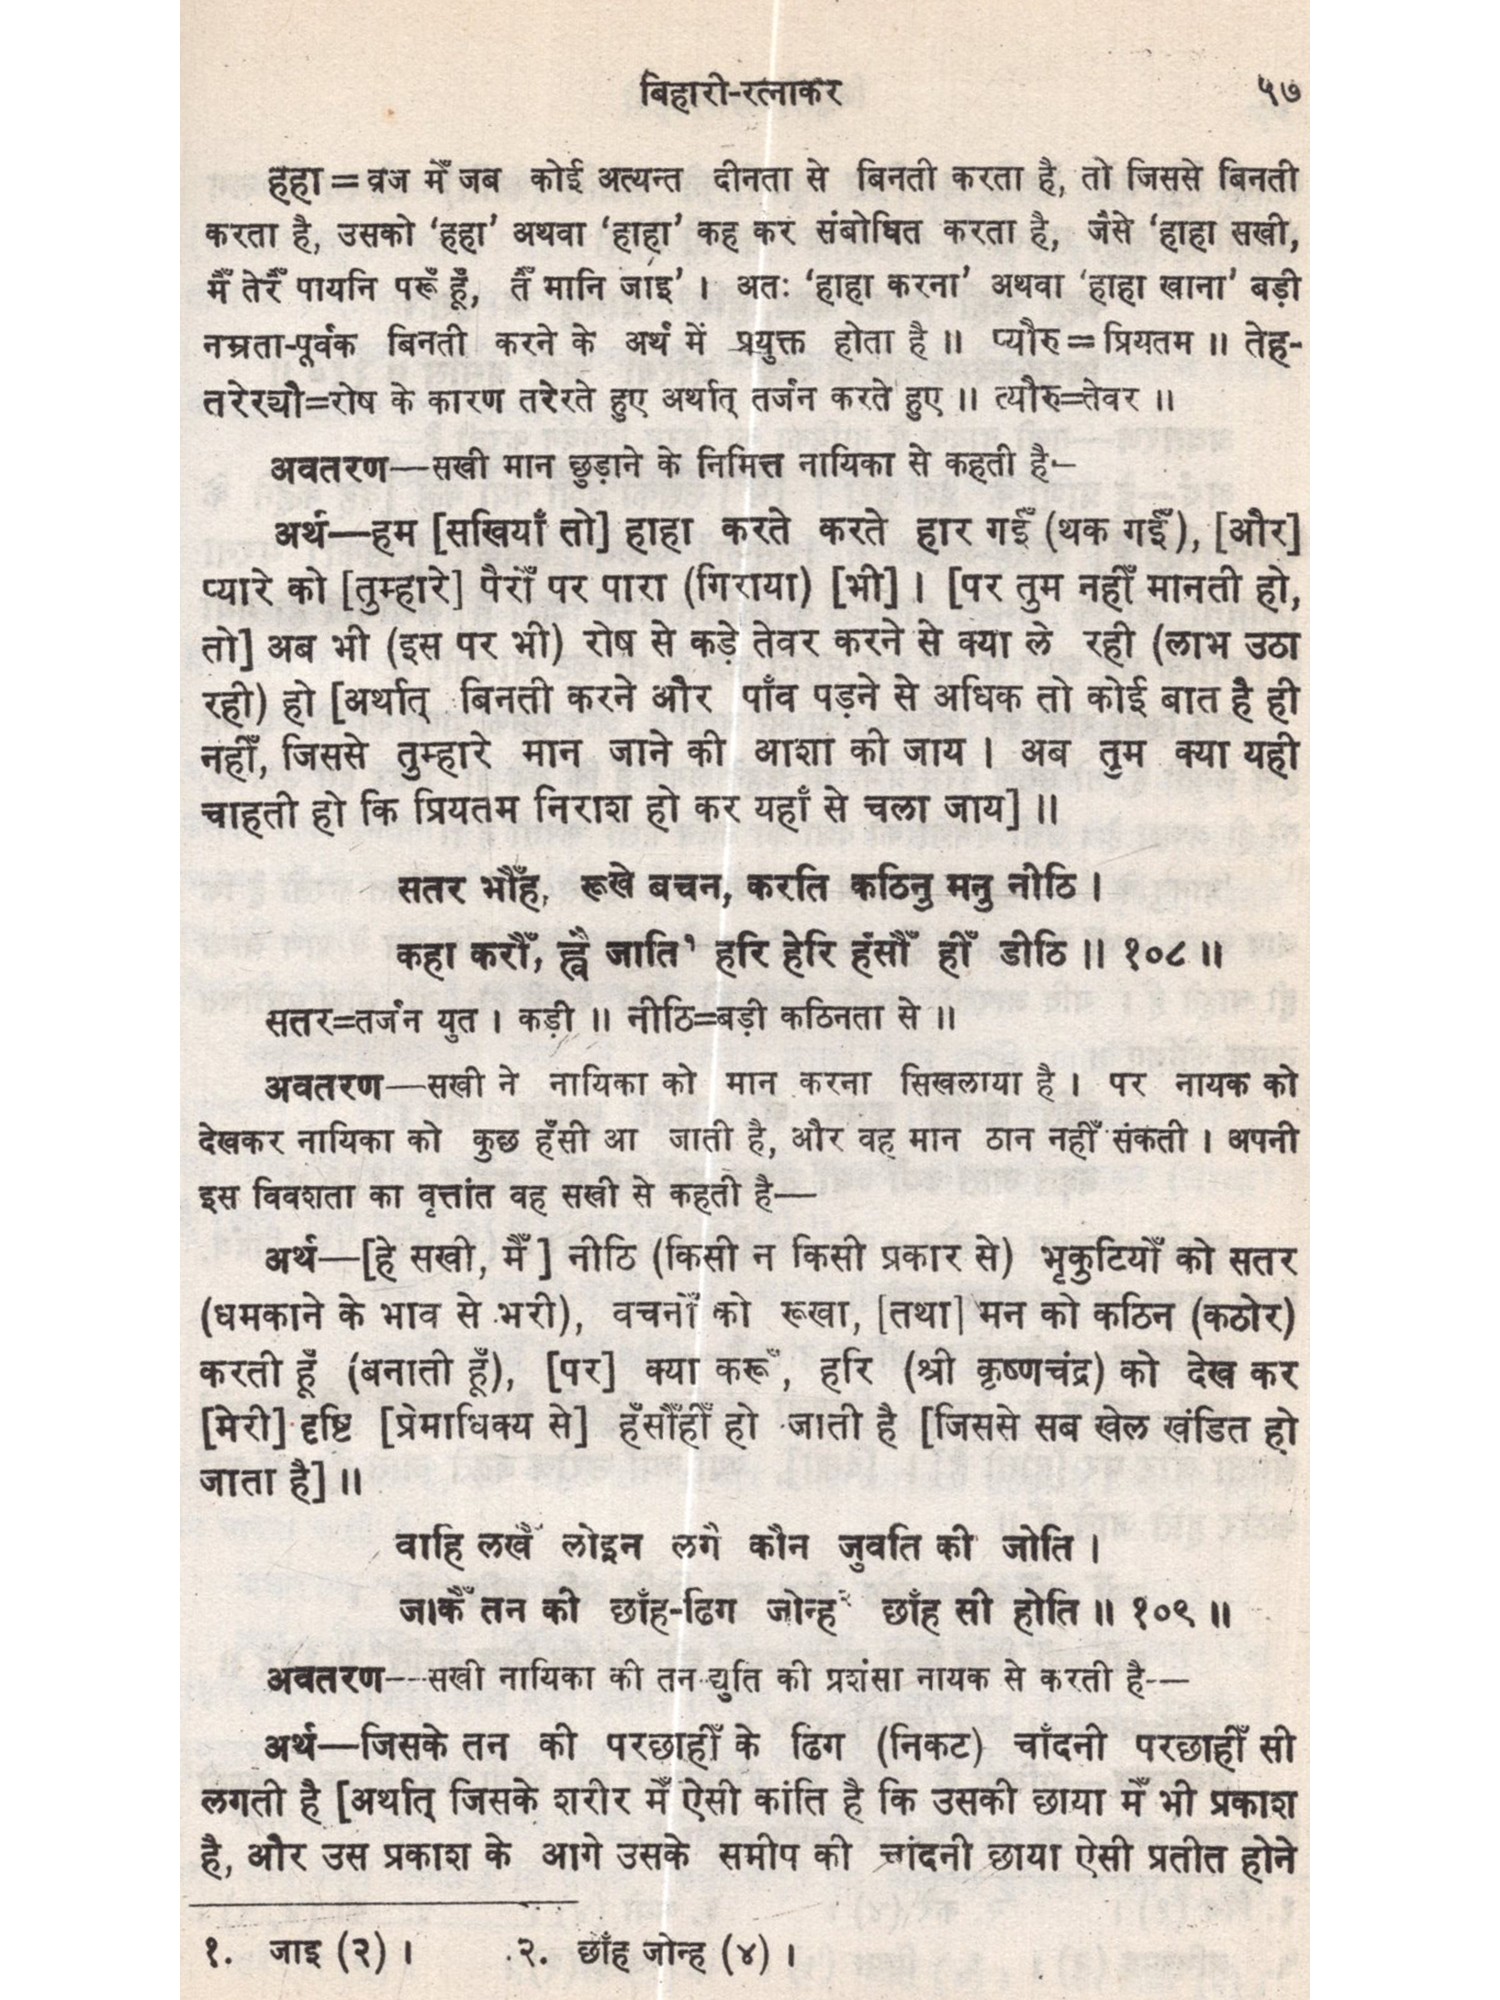 बिहारी-रत्नाकर ५७
हहा=व्रज मेँ जब कोई अत्यन्त दीनता से बिनती करता है, तो जिससे बिनती
करता है, उसको ‘हहा’ अथवा ‘हाहा’ कह कर संबोधित करता है, जैसे ‘हाहा सखी,
मैँ तेरैँ पायनि परूँ हूँ, तैँ मानि जाइ’ । अतः ‘हाहा करना’ अथवा ‘हाहा खाना’ बड़ी
नम्रता-पूर्वक बिनती करने के अर्थ में प्रयुक्त होता है ॥ प्यौरु=प्रियतम ॥ तेह-
तरेर्‍यौ=रोष के कारण तरेरते हुए अर्थात् तर्जन करते हुए ॥ त्यौरु=तेवर ॥
अवतरण—सखी मान छुड़ाने के निमित्त नायिका से कहती है—
अर्थ—हम [सखियाँ तो] हाहा करते करते हार गईँ (थक गईँ), [और]
प्यारे को [तुम्हारे] पैरोँ पर पारा (गिराया) [भी] । [पर तुम नहीँ मानती हो,
तो] अब भी (इस पर भी) रोष से कड़े तेवर करने से क्या ले रही (लाभ उठा
रही) हो [अर्थात् बिनती करने और पाँव पड़ने से अधिक तो कोई बात है ही
नहीँ, जिससे तुम्हारे मान जाने की आशा की जाय । अब तुम क्या यही
चाहती हो कि प्रियतम निराश हो कर यहाँ से चला जाय] ॥
सतर भौँह, रूखे बचन, करति कठिनु मनु नीठि ।
कहा करौँ, ह्वै जाति¹ हरि हेरि हंसौँ हीँ डीठि ॥ १०८ ॥
सतर=तर्जन युत । कड़ी ॥ नीठि=बड़ी कठिनता से ॥
अवतरण—सखी ने नायिका को मान करना सिखलाया है । पर नायक को
देखकर नायिका को कुछ हँसी आ जाती है, और वह मान ठान नहीँ संकती । अपनी
इस विवशता का वृत्तांत वह सखी से कहती है—
अर्थ—[हे सखी, मैँ] नीठि (किसी न किसी प्रकार से) भृकुटियोँ को सतर
(धमकाने के भाव से भरी), वचनोँ को रूखा, [तथा] मन को कठिन (कठोर)
करती हूँ (बनाती हूँ), [पर] क्या करूँ, हरि (श्री कृष्णचंद्र) को देख कर
[मेरी] दृष्टि [प्रेमाधिक्य से] हँसौँहीँ हो जाती है [जिससे सब खेल खंडित हो
जाता है] ॥
वाहि लखैँ लोइन लगै कौन जुवति की जोति ।
जाकैँ तन की छाँह-ढिग जोन्ह² छाँह सी होति ॥ १०९ ॥
अवतरण—सखी नायिका की तन द्युति की प्रशंसा नायक से करती है—
अर्थ—जिसके तन की परछाहीँ के ढिग (निकट) चाँदनी परछाहीँ सी
लगती है [अर्थात् जिसके शरीर मेँ ऐसी कांति है कि उसकी छाया मेँ भी प्रकाश
है, और उस प्रकाश के आगे उसके समीप की चांदनी छाया ऐसी प्रतीत होने
१. जाइ (२) । २. छाँह जोन्ह (४) ।